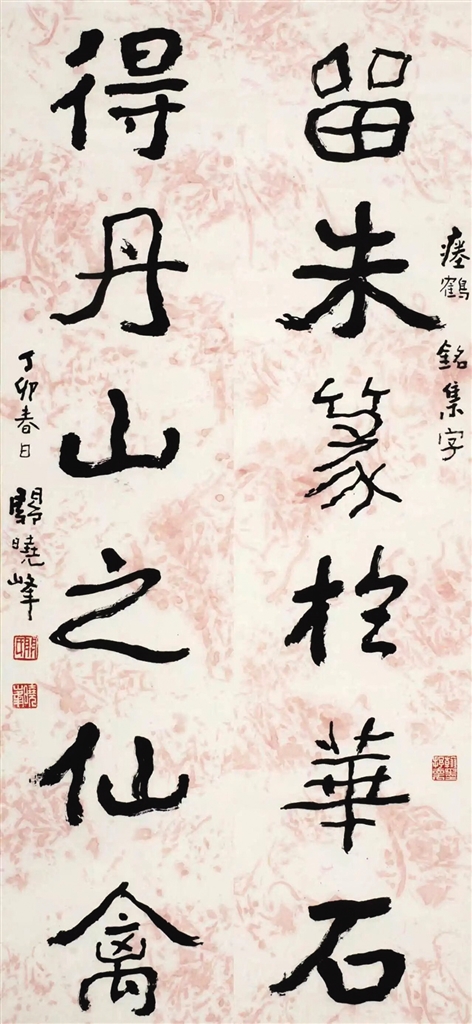 瘞鶴銘集字
留朱篆於華石
得丹山之仙禽
丁卯春日
關曉峰